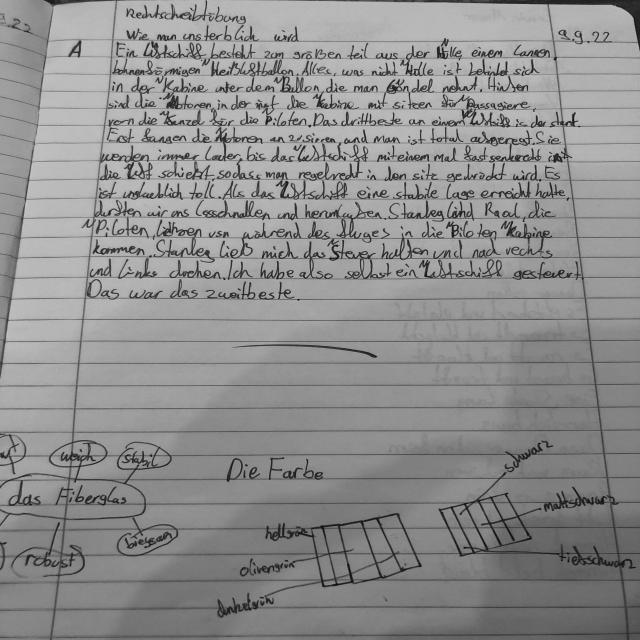 9.22
Rechtscheibübung
Wie man unsterblich wird
9.9.22
A
Ein Luftschiff besteht zum größen teil aus der Hülle einem Langen,
bohnenförmigen Heißluftballon. Alles, was nicht Hülle ist befindet sich
in der Kabine unter dem Ballon, die man Gondel nennt. Hinten
sind die Motoren, in der die Kabine mit sitzen für Passagiere,
vorn die Kanzel für die Piloten. Das drittbeste an einem Luftschiff is der start.
Erst fangen die Motoren an zu siren, und man ist total aufgeregt. Sie
werden immer Lauter, bis das Luftschiff mit einem mal fast senkrecht in
die Luft schießt, sodass man regelrecht in den sitz gedrückt wird. Es
ist unglaublich toll. Als das Luftschiff eine stabile Lage erreicht hatte,
durften wir uns Losschnallen und herumlaufen. Stanley und Raoul, die
Piloten, ließen uns während des fluges in die Piloten Kabine
kommen. Stanley ließ mich das Steuer halten und nach rechts
und Links drehen. Ich habe also selbst ein Luftschiff gesteuert
Das war das zweitbeste.
weich
stabil
das Fiberglas
robust
biegsam
Die Farbe
hellgrün
olivengrün
dunkelgrün
schwarz
mattschwarz
tiefschwarz